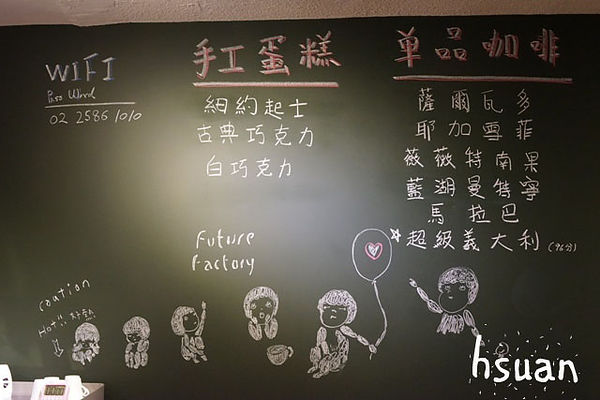 WIFI
Pass Word
02 2586 1010
手工蛋糕
紐約起士
古典巧克力
白巧克力
单品咖啡
薩爾瓦多
耶加雪菲
薇薇特南果
藍湖曼特寧
馬拉巴
超級義大利(96分)
Future
Factory
caution
HOT!!好熱
hsuan